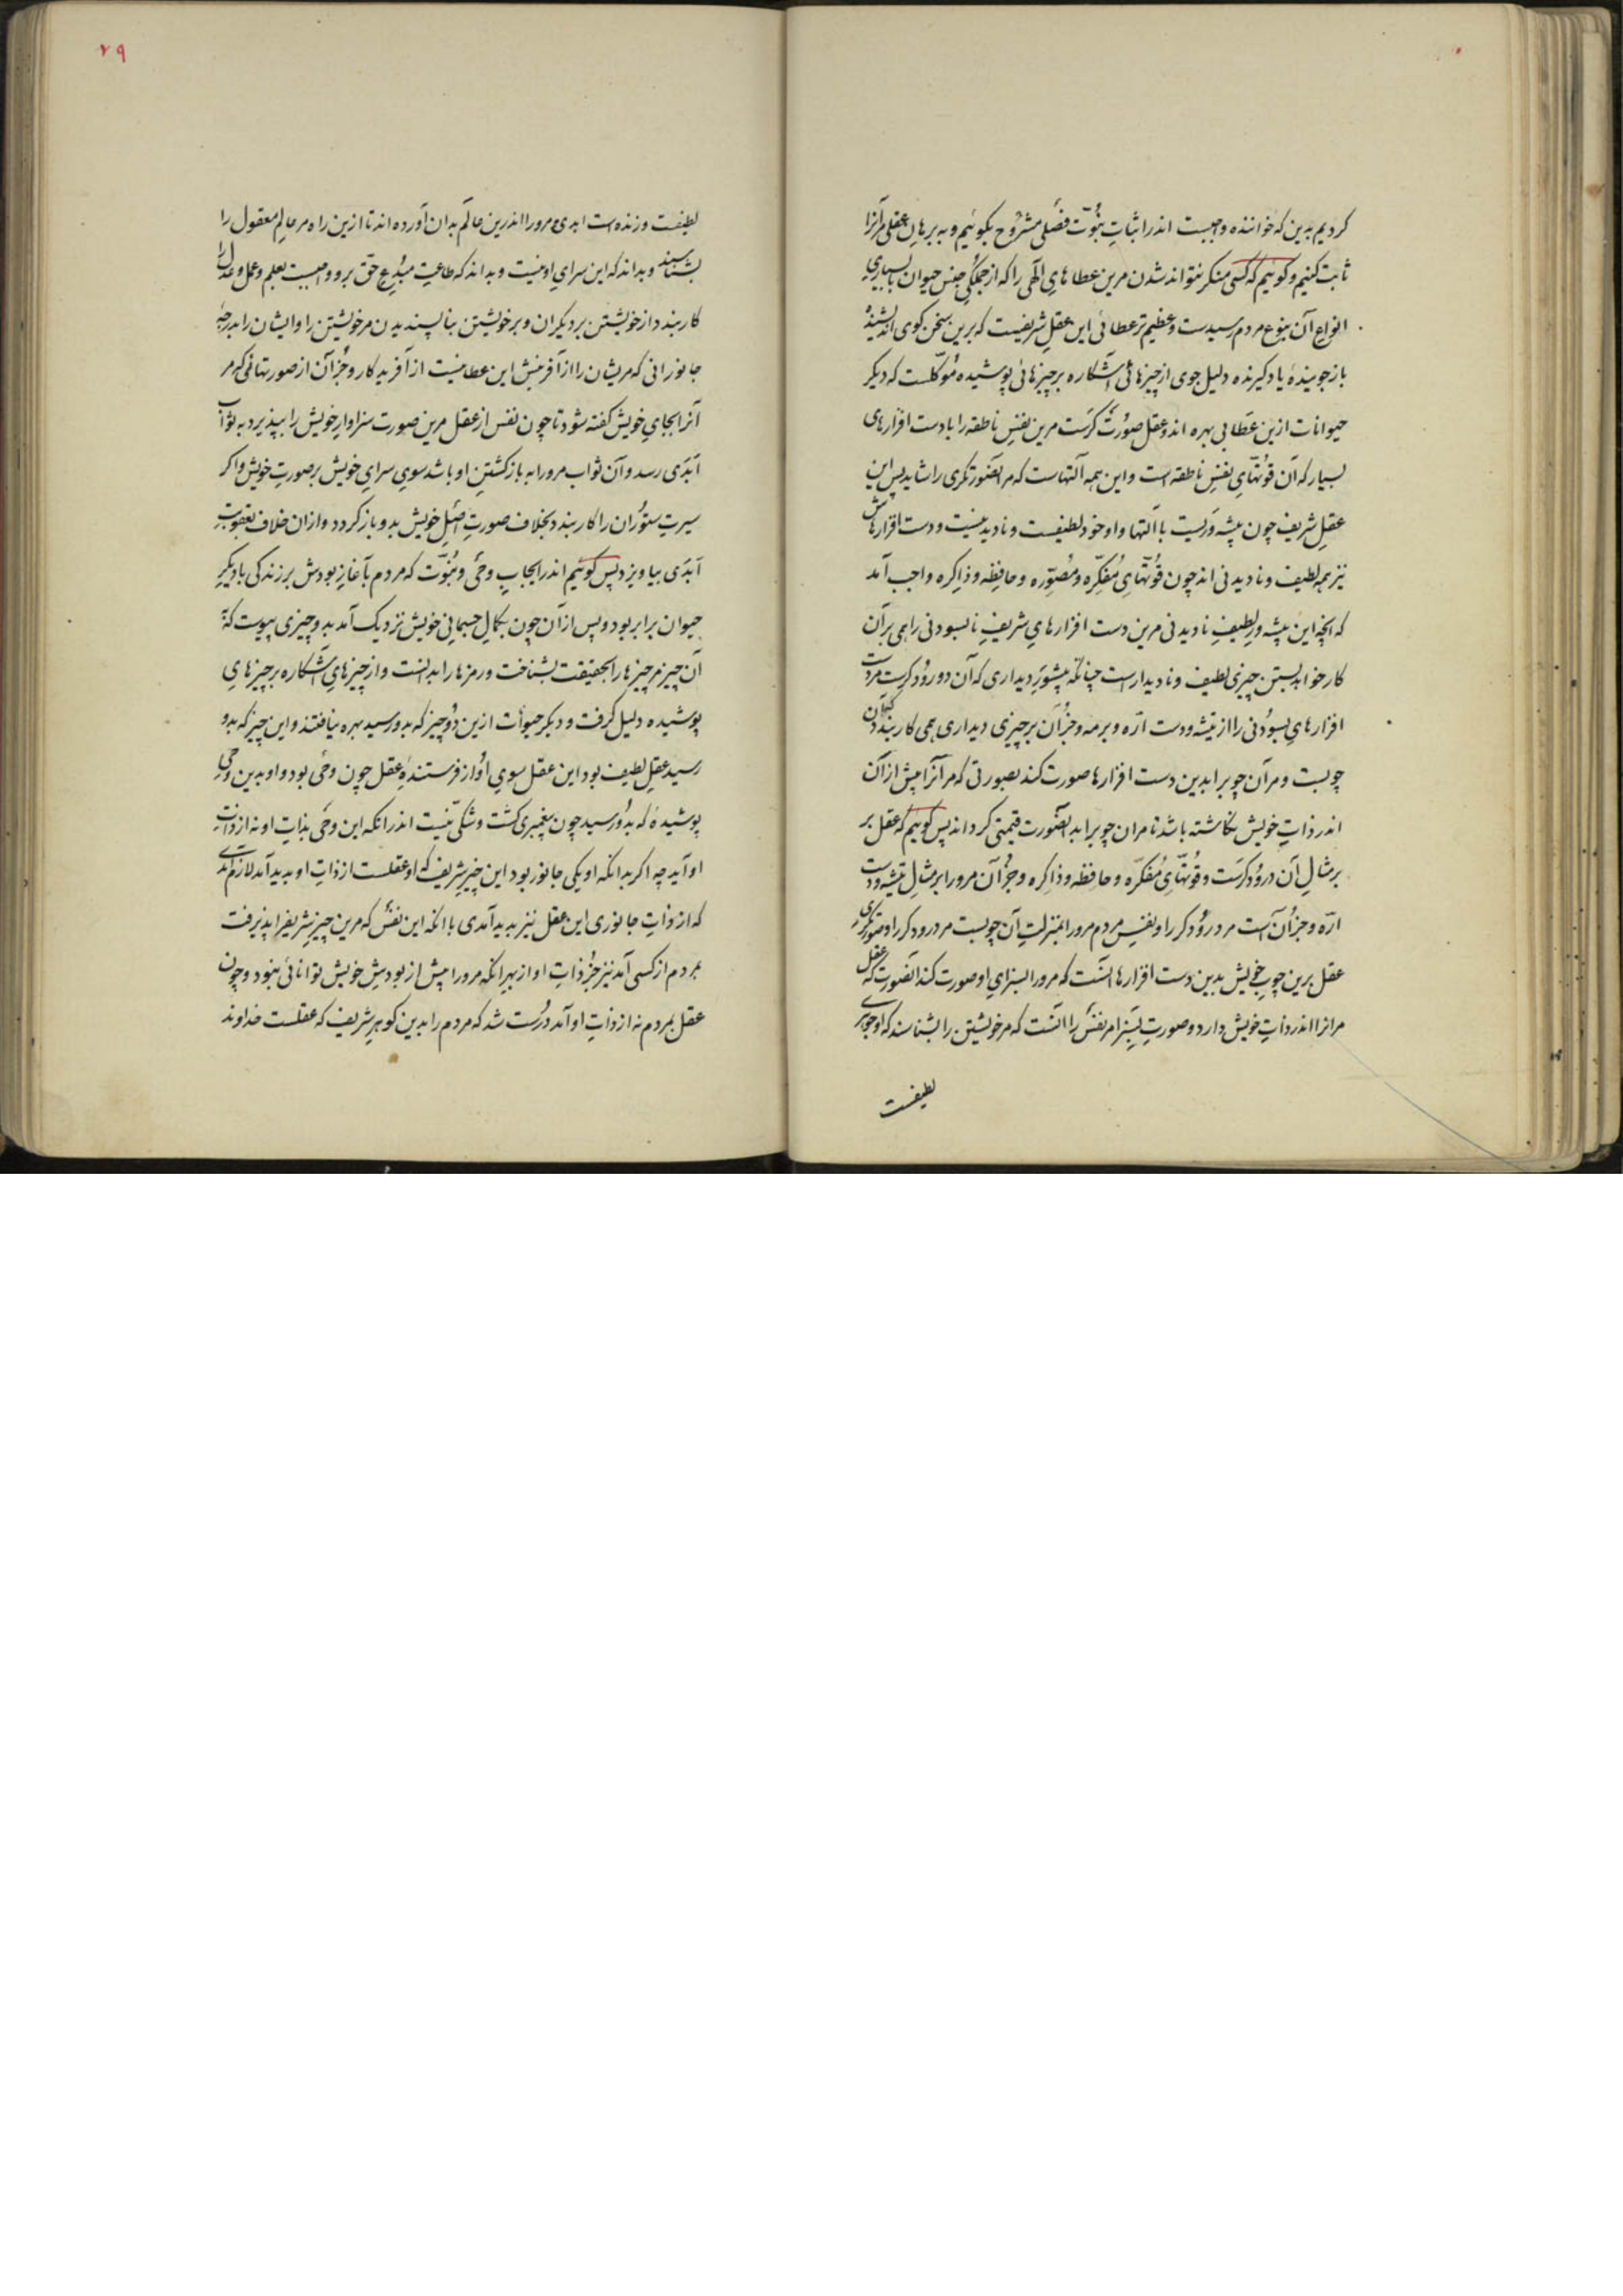 کردیم بدین که خواننده واجبست اندر اثباتِ نبُوّت فصلی مشرُوح بگوئیم و به برهانِ عقلی مر آنرا
ثابت کنیم و گوییم که کسی منکر نتواند شدن مرین عطاهایِ الٓهی را که از جملگیِ جنس حیوان با بسیاریِ
انواعِ آن بنوع مردم رسیدست و عظیم‌تر عطائی این عقلِ شریفست که برین سخن کوی اندیشندهٔ
باز جویندهٔ یاد گیرنده دلیل جوی از چیزهائی آشکاره بر چیزهائی پوشیده مُوکّلست که دیگر
حیوانات ازین عَطا بی بهره اند و عقل صُورت گرَست مرین نفسِ ناطقه را با دست افزارهای
بسیار که آن قوّتهایِ نفسِ ناطقه است و این همه آلتهاست که مر آنصورتگری را شاید پس این
عقلِ شریف چون پیشه وَریست با آلتها و او خود لطیفست و نادیدنیست و دست افزارهاش
نیز همه لطیف و نادیدنی اند چون قُوّتهایِ مُفکّره و مُصوّره و حافِظه و ذاکِره واجب آمد
که آنچه این پیشه ورِ لطیفِ نادیدنی مرین دست افزارهایِ شریفِ نابسودنی را همی بر آن
کار خواهد بستن چیزی لطیف و نادیدار است چنانکه پیشَورِ دیداری که آن درودگرست مر دست
افزارهایِ بسُودنی را از تیشه و دست ارّه و برمه و جز آن بر چیزی دیداری همی کار بندد که آن
چوبست و مر آن چوبرا بدین دست افزارها صورت کند بصورتی که مر آنرا پیش از آن
اندر ذاتِ خویش نگاشته باشد تا مر ان چوبرا بدآنصُورت قیمتی گرداند پس گوییم که عقل بر
بر مثالِ آن درُودگرَست و قُوّتهایِ مُفکّره و حافظه و ذاکِره و جُز آن مرورا بر مثالِ تیشه و دست
ارّه و جز آن است مر درُودگر را و نفسِ مردم مرورا بمنزلتِ آن چوبست مر درودگر را و صورتگریِ
عقل برین چوبِ خویش بدین دست افزارها آنست که مرورا بسزایِ او صورت کند آنصورت که عقل
مرانرا اندر ذاتِ خویش دارد و صورتِ بسزا مر نفس را آنست که مر خویشتن را بشناسد که او جوهری
لطیفست
۲۹
لطیفست و زنده است ابدی و مرورا اندرین عالَم بدان آورده اند تا ازین راه مر عالمِ معقول را
بشناسد و بداند که این سرایِ او نیست و بداند که طاعتِ مبُدِعِ حقّ برو واجبست بعلم و عمل و عدل را
کار بندد از خویشتن بر دیگران و بر خویشتن بناپسندیدن مر خویشتن را و ایشان را بدرجهٔ
جانورانی که مریشان را از آفرینش این عطا نیست از آفریدگار و جُز آن از صورتهائی که مر
آنرا بجایِ خویش گفته شود تا چون نفس از عقل مرین صورت سزاوارِ خویش را بپذیرد به ثوابِ
اَبَدَی رسد و آن ثواب مرورا به بازگشتنِ او باشد سویِ سرایِ خویش بر صورتِ خویش و اگر
سیرتِ ستوُران را کار بندد بخلاف صورتِ اصلِ خویش بدو باز گردد و از ان خلاف بعقوبتِ
اَبَدی بیاویزد پس گوئیم اندر ایجابِ وحیَ و نبُوّت که مردم بآغازِ بودش بر زندگی با دیگرِ
حیوان برابر بود و پس از آن چون بکمالِ جسمانیِ خویش نزدیک آمد بدو چیزی پیوست که
آن چیز مر چیزها را بحقیقت بشناخت و رمزها را بدانست و از چیزهایِ آشکاره بر چیزهایِ
پوشیده دلیل گرفت و دیگر حیوٰان ازین دُو چیز که بدو رسید بهره نیافتند و این چیز که بدو
رسید عقلِ لطیف بود این عقل سویِ اوُ از فرستندهٔ عقل چون وحی بود و او بدین وحیِ
پوشیده که بدُو رسید چون پیغمبری گشت و شکّی نیست اندر آنکه این وحَی بذاتِ او نه از ذاتِ
او آید چه اگر بدانکه او یکی جانور بود این چیزِ شریف که او عقلست از ذاتِ او پدید آمد لازم آمدی
که از ذاتِ جانوری این عقل نیز پدید آمدی با آنکه این نفس که مرین چیزِ شریفرا پذیرفت
بمردم از کسی آمد نیز جُز ذاتِ او از بهرِ آنکه مرورا پیش از بودشِ خویش توانائی نبود و چون
عقل بمردم نه از ذاتِ او آمد درُست شد که مردم را بدین گوهرِ شریف که عقلست خداوند